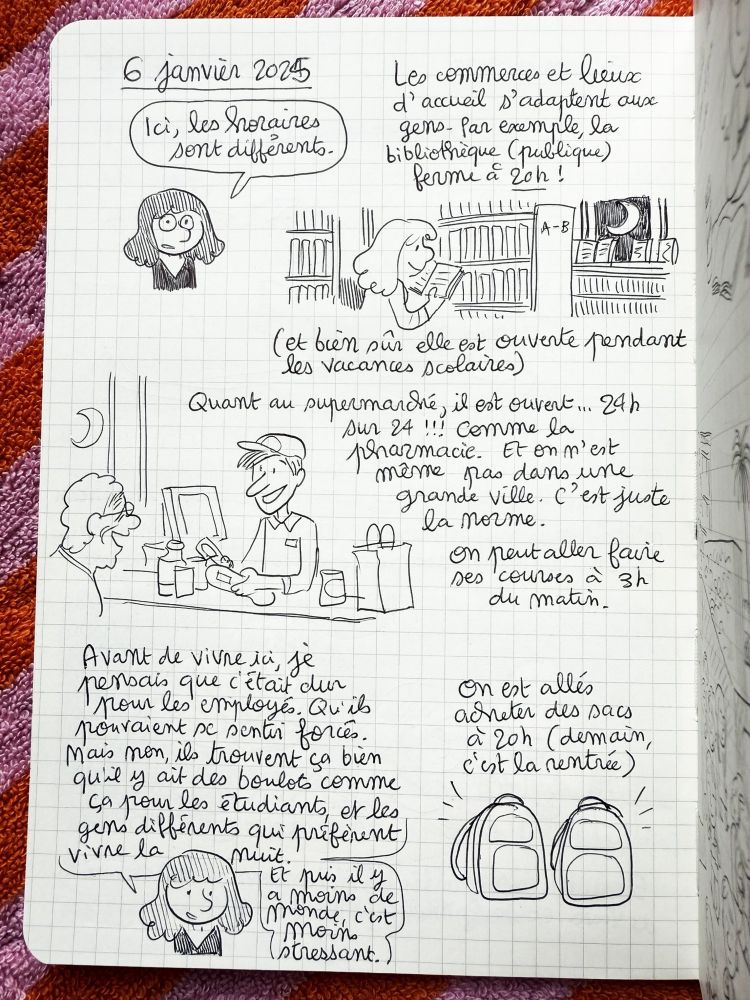 6 janvier 2025
Ici, les horaires
sont différents.
Les commerces et lieux
d'accueil s'adaptent aux
gens. Par exemple, la
bibliothèque (publique)
ferme à 20h !
A-B
(et bien sûr elle est ouverte pendant
les vacances scolaires)
Quant au supermarché, il est ouvert... 24h
sur 24 !!! Comme la
pharmacie. Et on n'est
même pas dans une
grande ville. C'est juste
la norme.
On peut aller faire
ses courses à 3h
du matin.
Avant de vivre ici, je
pensais que c'était dur
pour les employés. Qu'ils
pouvaient se sentir forcés.
Mais non, ils trouvent ça bien
qu'il y ait des boulots comme
ça pour les étudiants, et les
gens différents qui préfèrent
vivre la nuit.
Et puis il y
a moins de
monde, c'est
moins
stressant.
On est allés
acheter des sacs
à 20h (demain,
c'est la rentrée)